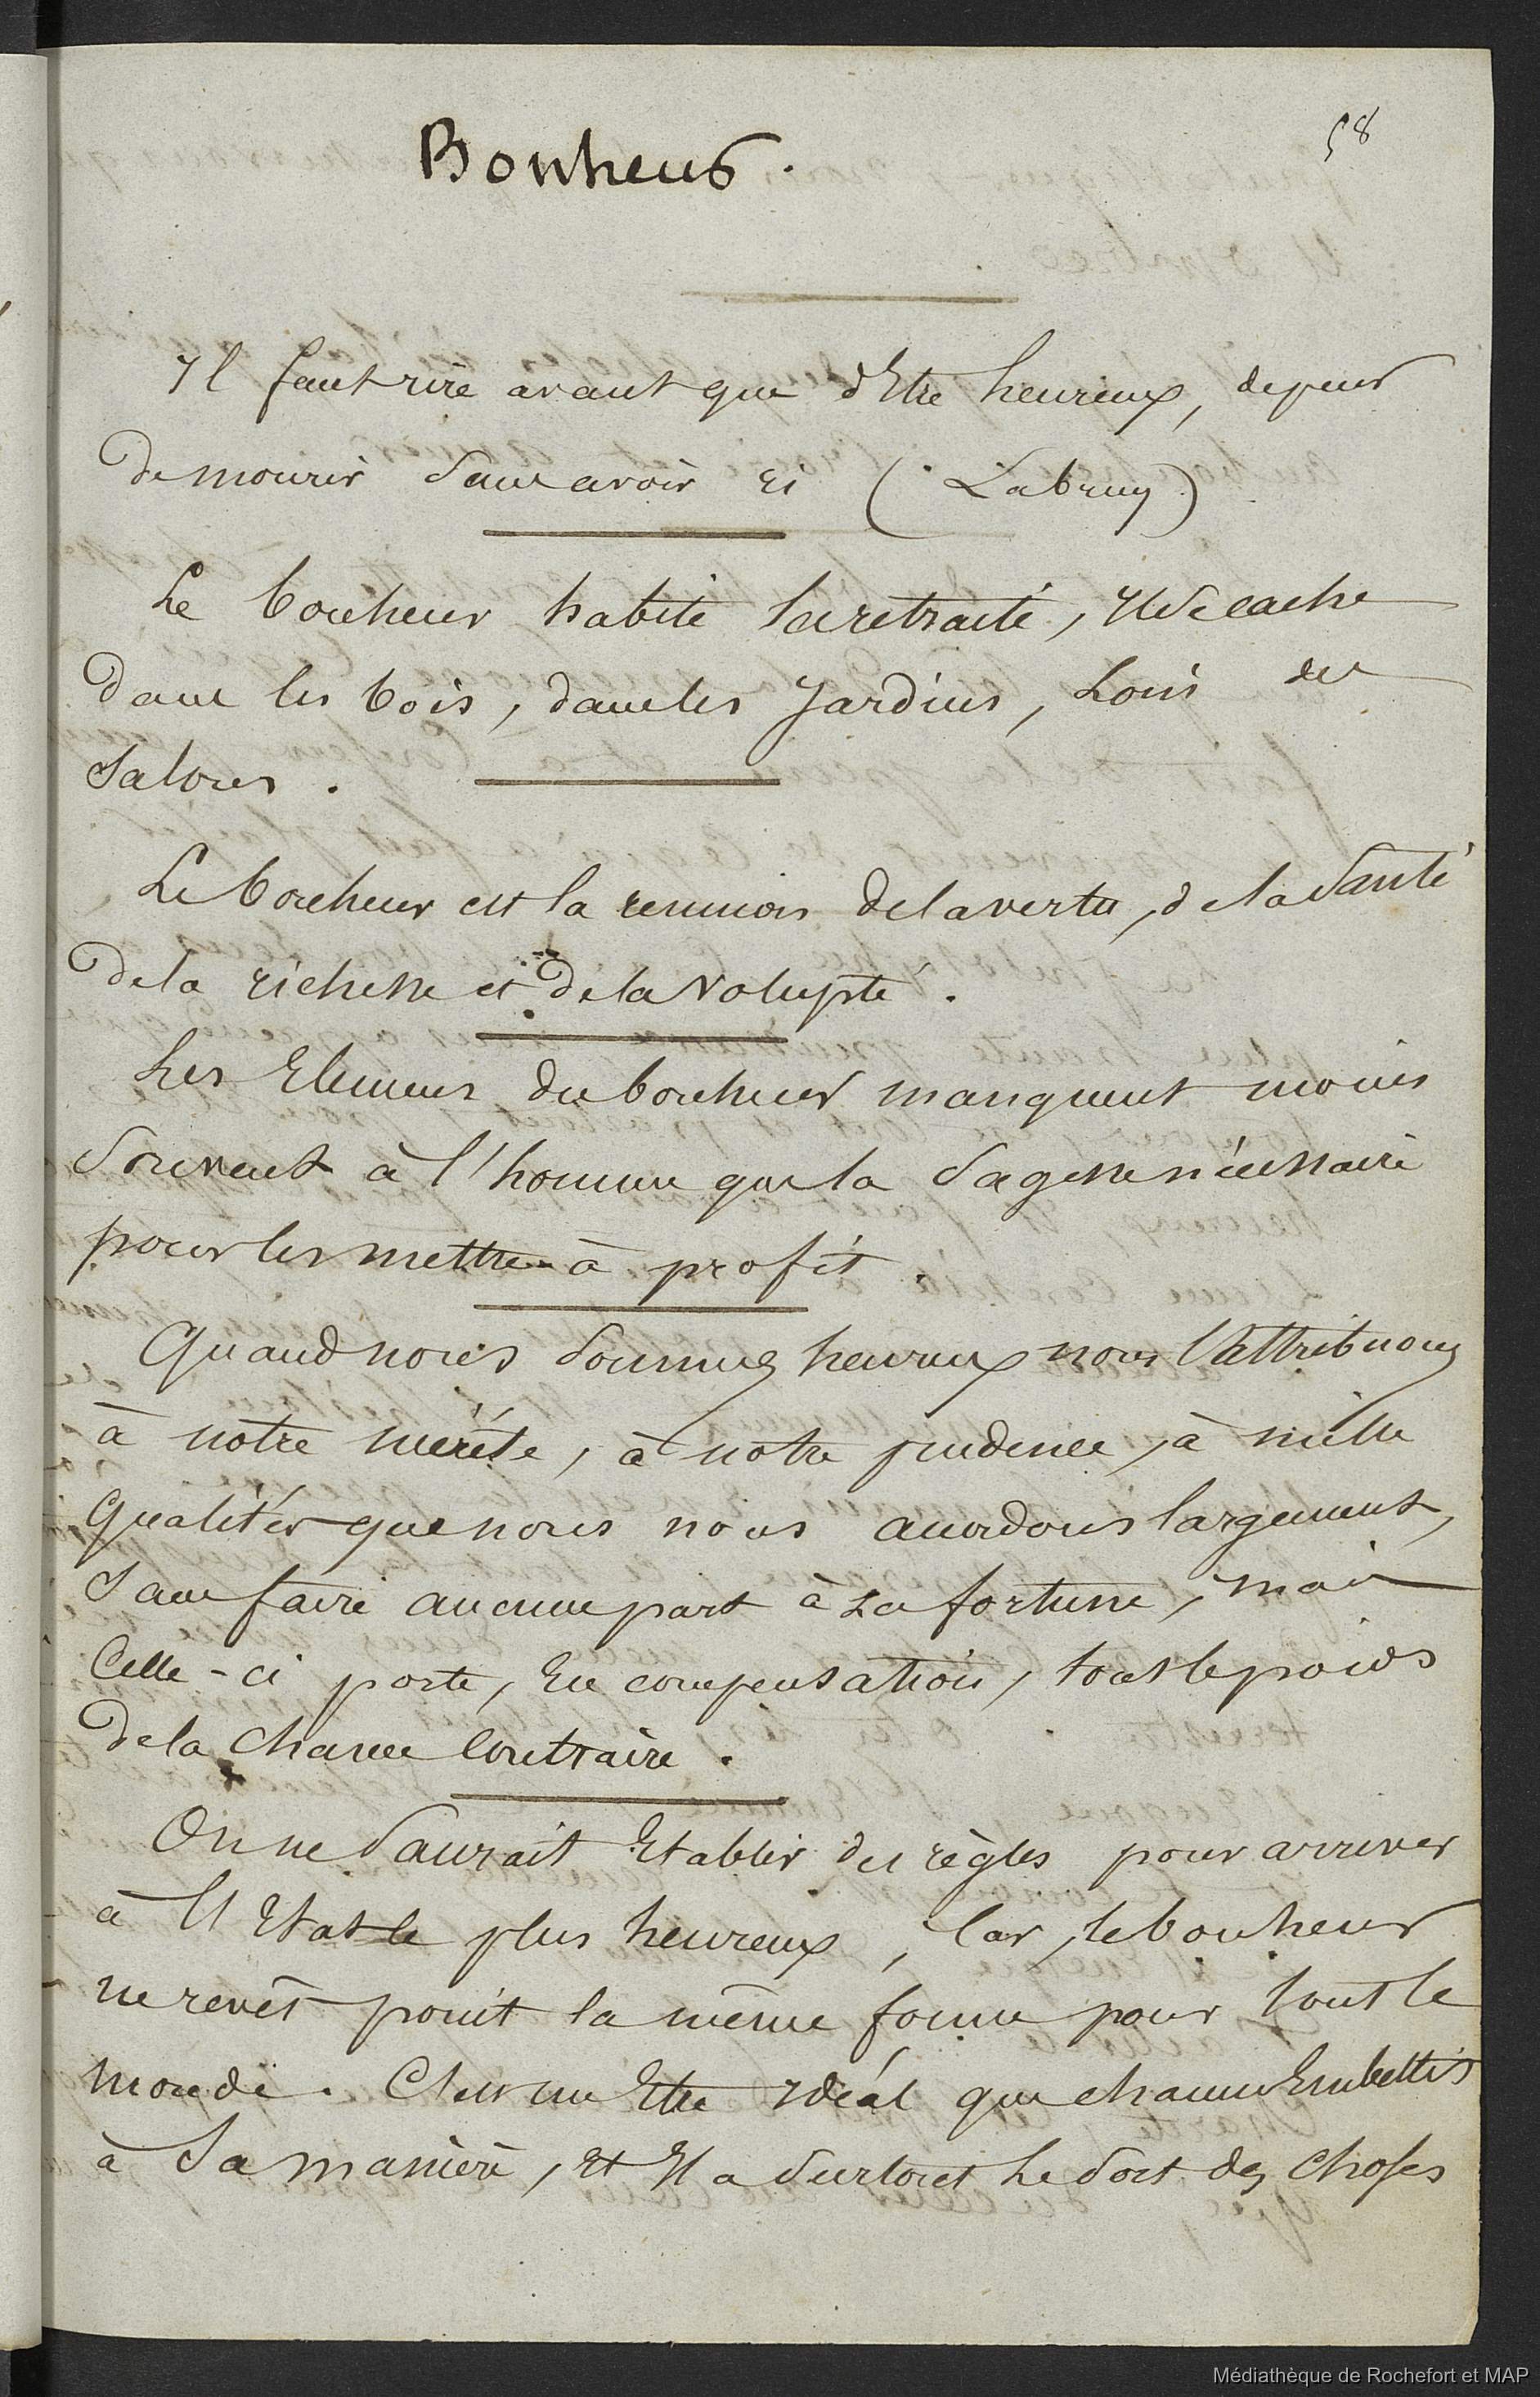 58
Bonheur.
Il faut rire avant que d'Etre heureux, de peur
de mourir sans avoir ri (Labruy)
Le bonheur habite la retraite, Il se cache
dans les bois, dans les Jardins, Loin des
salons.
Le bonheur est la reunion de la vertu, de la Santé
de la richesse et de la Volupté.
Les Elemens du bonheur manquent moins
souvent à l'homme que la sagesse nécessaire
pour les mettre à profit.
Quand nous sommes heureux nous l'attribuons
à notre mérite, à notre prudence, à mille
qualités que nous nous accordons largement,
sans faire aucune part à La fortune, mais
celle-ci porte, En compensation, tout le poids
de la chance Contraire.
On ne saurait Etablir des règles pour arriver
à l'Etat le plus heureux, Car, le bonheur
ne revêt point la même forme pour tout le
monde. C'est un Etre idéal que chacun Embellit
à Sa manière, Et Il a surtout Le sort des choses
Médiathèque de Rochefort et MAP